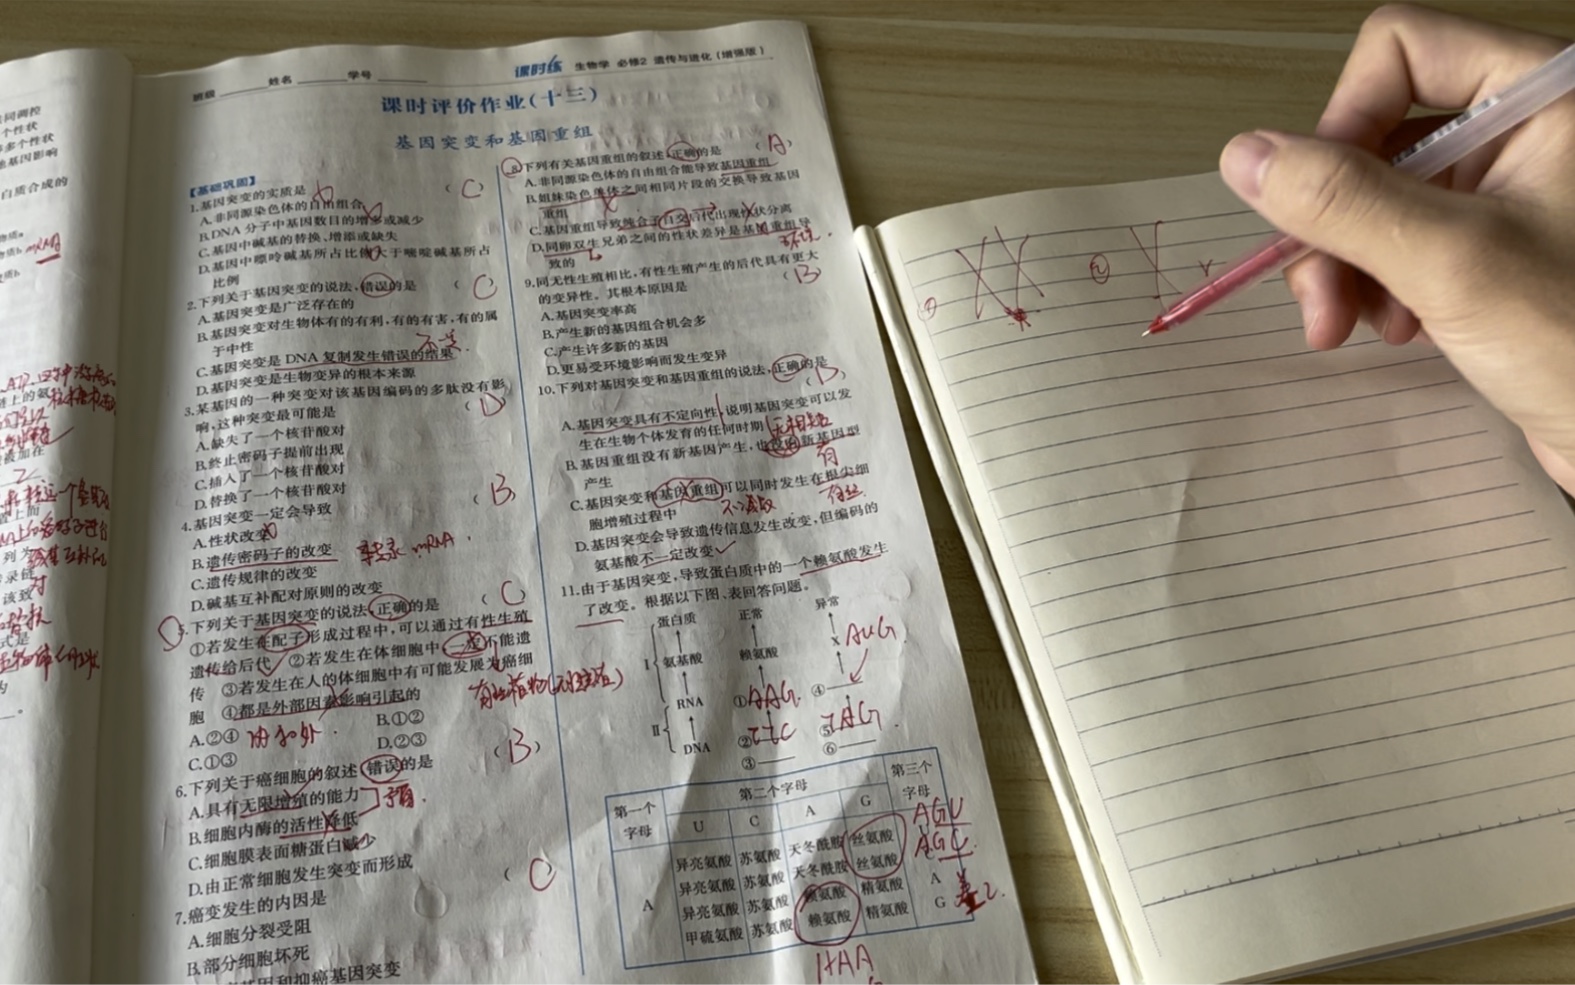 班级 姓名 学号
课时练 生物学 必修2 遗传与进化(增强版)
课时评价作业(十三)
基因突变和基因重组
【基础巩固】
1.基因突变的实质是 (C)
A.非同源染色体的自由组合
B.DNA分子中基因数目的增多或减少
C.基因中碱基的替换、增添或缺失
D.基因中嘌呤碱基所占比值大于嘧啶碱基所占
比例
2.下列关于基因突变的说法,错误的是 (C)
A.基因突变是广泛存在的
B.基因突变对生物体有的有利,有的有害,有的属
于中性
C.基因突变是DNA复制发生错误的结果
D.基因突变是生物变异的根本来源
3.某基因的一种突变对该基因编码的多肽没有影
响,这种突变最可能是 (D)
A.缺失了一个核苷酸对
B.终止密码子提前出现
C.插入了一个核苷酸对
D.替换了一个核苷酸对
4.基因突变一定会导致 (B)
A.性状改变
B.遗传密码子的改变 转录 mRNA
C.遗传规律的改变
D.碱基互补配对原则的改变
5.下列关于基因突变的说法,正确的是 (C)
①若发生在配子形成过程中,可以通过有性生殖
遗传给后代 ②若发生在体细胞中一定不能遗
传 ③若发生在人的体细胞中有可能发展为癌细
胞 ④都是外部因素影响引起的
A.②④ B.①②
内和外
C.①③ D.②③
6.下列关于癌细胞的叙述,错误的是 (B)
A.具有无限增殖的能力
B.细胞内酶的活性降低
C.细胞膜表面糖蛋白减少
D.由正常细胞发生突变而形成
7.癌变发生的内因是 (C)
A.细胞分裂受阻
B.部分细胞坏死
基因和抑癌基因突变
8.下列有关基因重组的叙述,正确的是 (A)
A.非同源染色体的自由组合能导致基因重组
B.姐妹染色单体之间相同片段的交换导致基因
重组
C.基因重组导致纯合子自交后代出现性状分离
D.同卵双生兄弟之间的性状差异是基因重组导
致的 环境
9.同无性生殖相比,有性生殖产生的后代具有更大
的变异性。其根本原因是 (B)
A.基因突变率高
B.产生新的基因组合机会多
C.产生许多新的基因
D.更易受环境影响而发生变异
10.下列对基因突变和基因重组的说法,正确的是
(D)
A.基因突变具有不定向性,说明基因突变可以发
生在生物个体发育的任何时期
B.基因重组没有新基因产生,也没有新基因型
产生 有
C.基因突变和基因重组可以同时发生在根尖细
胞增殖过程中 有丝
D.基因突变会导致遗传信息发生改变,但编码的
氨基酸不一定改变
11.由于基因突变,导致蛋白质中的一个赖氨酸发生
了改变。根据以下图、表回答问题。
蛋白质 正常 异常
Ⅰ 氨基酸 赖氨酸 X AUG
RNA ①AAG ④
Ⅱ ②TTC ⑤TAG
DNA ③ ⑥
第一个字母 第二个字母 第三个字母
U C A G
异亮氨酸 苏氨酸 天冬酰胺 丝氨酸 AGU
异亮氨酸 苏氨酸 天冬酰胺 丝氨酸 AGC
A 异亮氨酸 苏氨酸 赖氨酸 精氨酸 A
甲硫氨酸 苏氨酸 赖氨酸 精氨酸 G
AAA
① ②